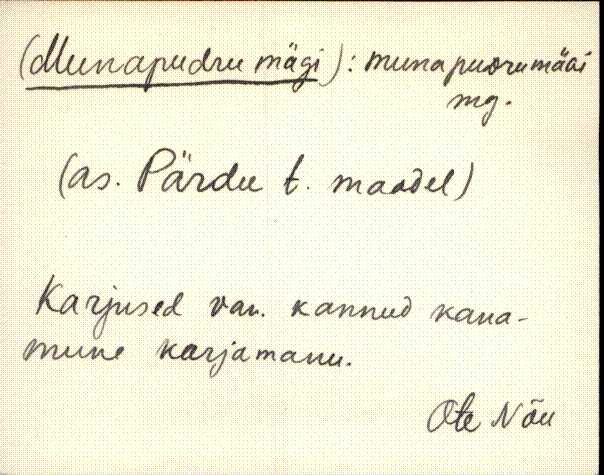 (Munapudru mägi): munapudrumäai
mg.
(as. Pärdu t. maadel)
Karjused van. kannud kana-
mune karjamanu.
Ote Nõu